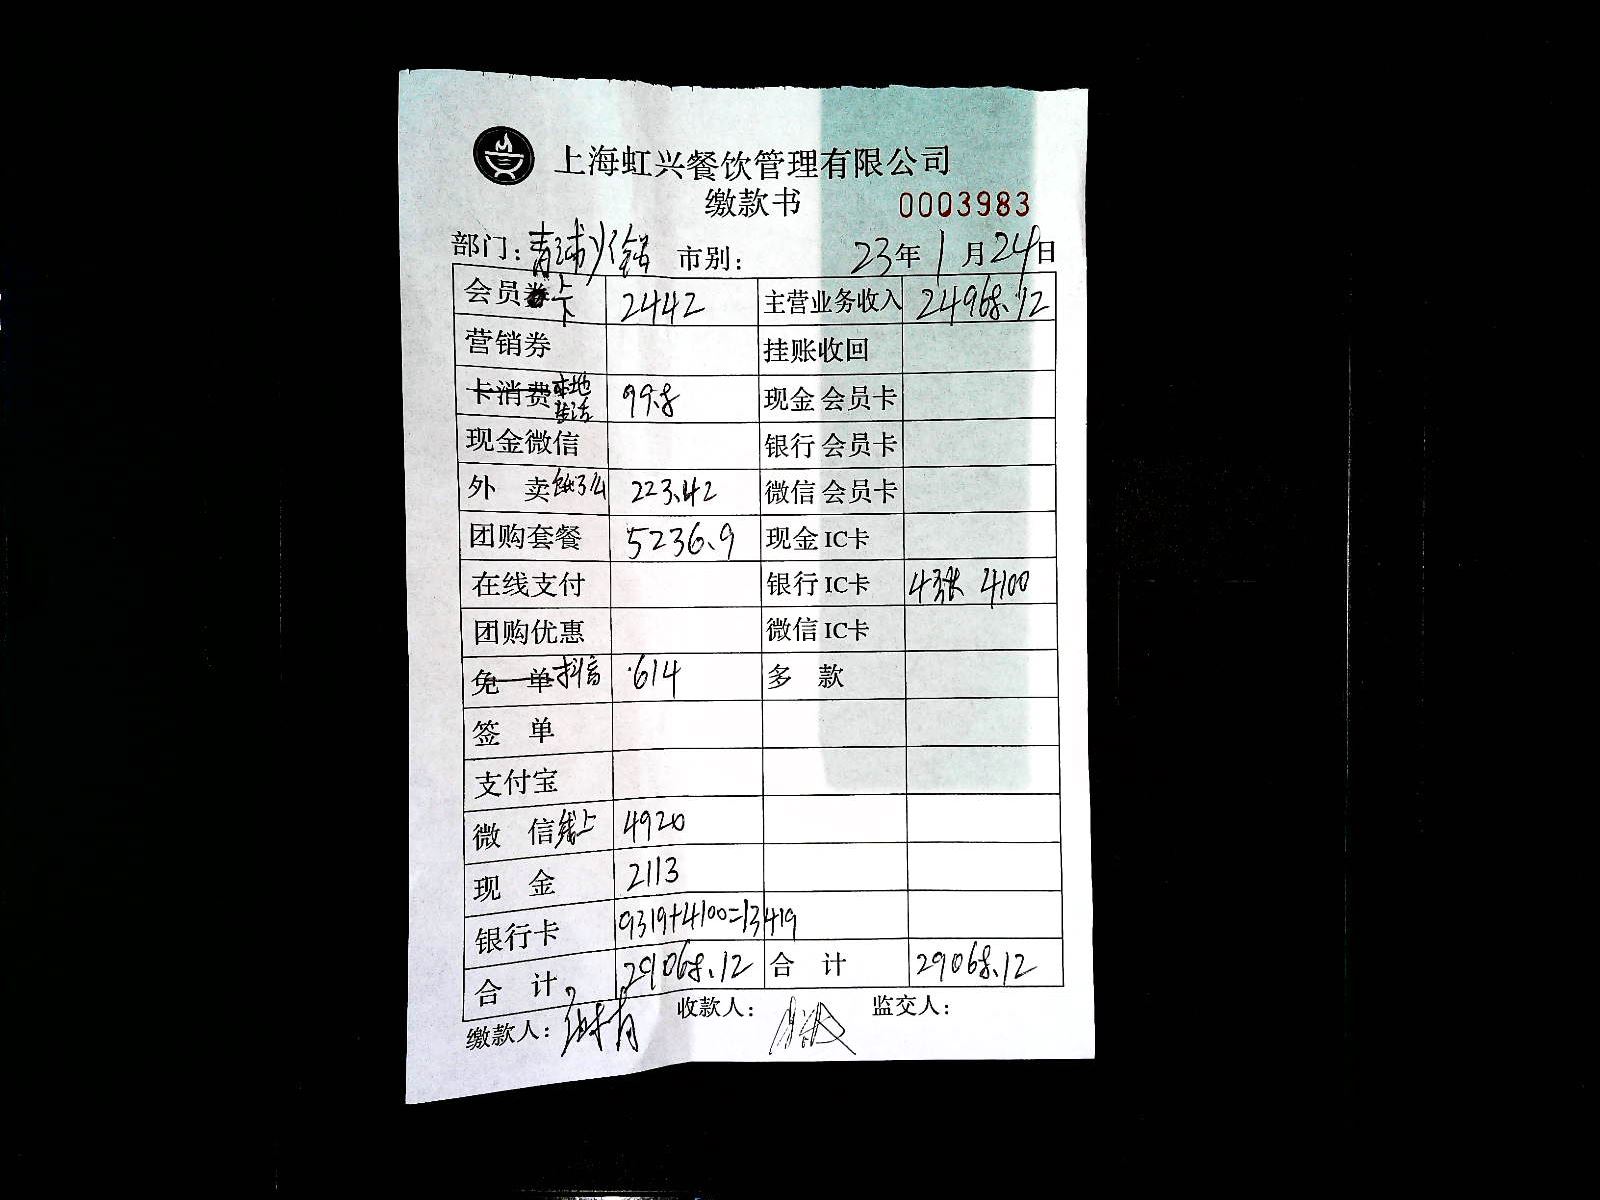 上海虹兴餐饮管理有限公司
缴款书 0003983
部门: 青浦 市别: 23年1月24日
会员卡 2442 主营业务收入 24968.12
营销券 挂账收回
卡消费 本地生活 99.8 现金 会员卡
现金微信 银行 会员卡
外 卖 饿了么 223.42 微信 会员卡
团购套餐 5236.9 现金 IC卡
在线支付 银行 IC卡 4张 4100
团购优惠 微信 IC卡
免 单 抖音 614 多 款
签 单
支付宝
微 信 线上 4920
现 金 2113
银行卡 9319+4100=13419
合 计 29068.12 合 计 29068.12
缴款人: 收款人: 监交人: